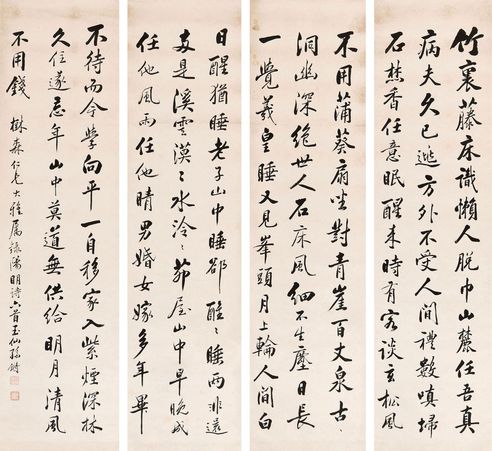 竹裏藤床識懶人脫巾山麓任吾真
病夫久已逃方外不受人間禮數嗔掃
石焚香任意眠醒來時有客談玄松風
不用蒲葵扇坐對青崖百丈泉古
洞幽深絕世人石床風細不生塵日長
一覺羲皇睡又見峯頭月上輪人間白
日醒猶睡老子山中睡卻醒醒睡兩非還
兩是溪雲漠漠水泠茆屋山中早晚成
任他風雨任他晴男婚女嫁多年畢
不待而今學向平一自移家入紫煙深林
久住遂忘年山中莫道無供給明月清風
不用錢 森仁兄大雅屬錄陽明詩六首玉仙孫